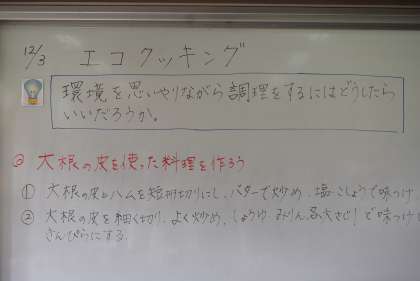 12/3 エコクッキング
環境を思いやりながら調理をするにはどうしたら
いいだろうか。
大根の皮を使った料理を作ろう
① 大根の皮とハムを短冊切りにし、バターで炒め、塩・こしょうで味つけ
② 大根の皮を細く切り、よく炒め、しょうゆ、みりん、各大さじ1で味つけ
きんぴらにする。